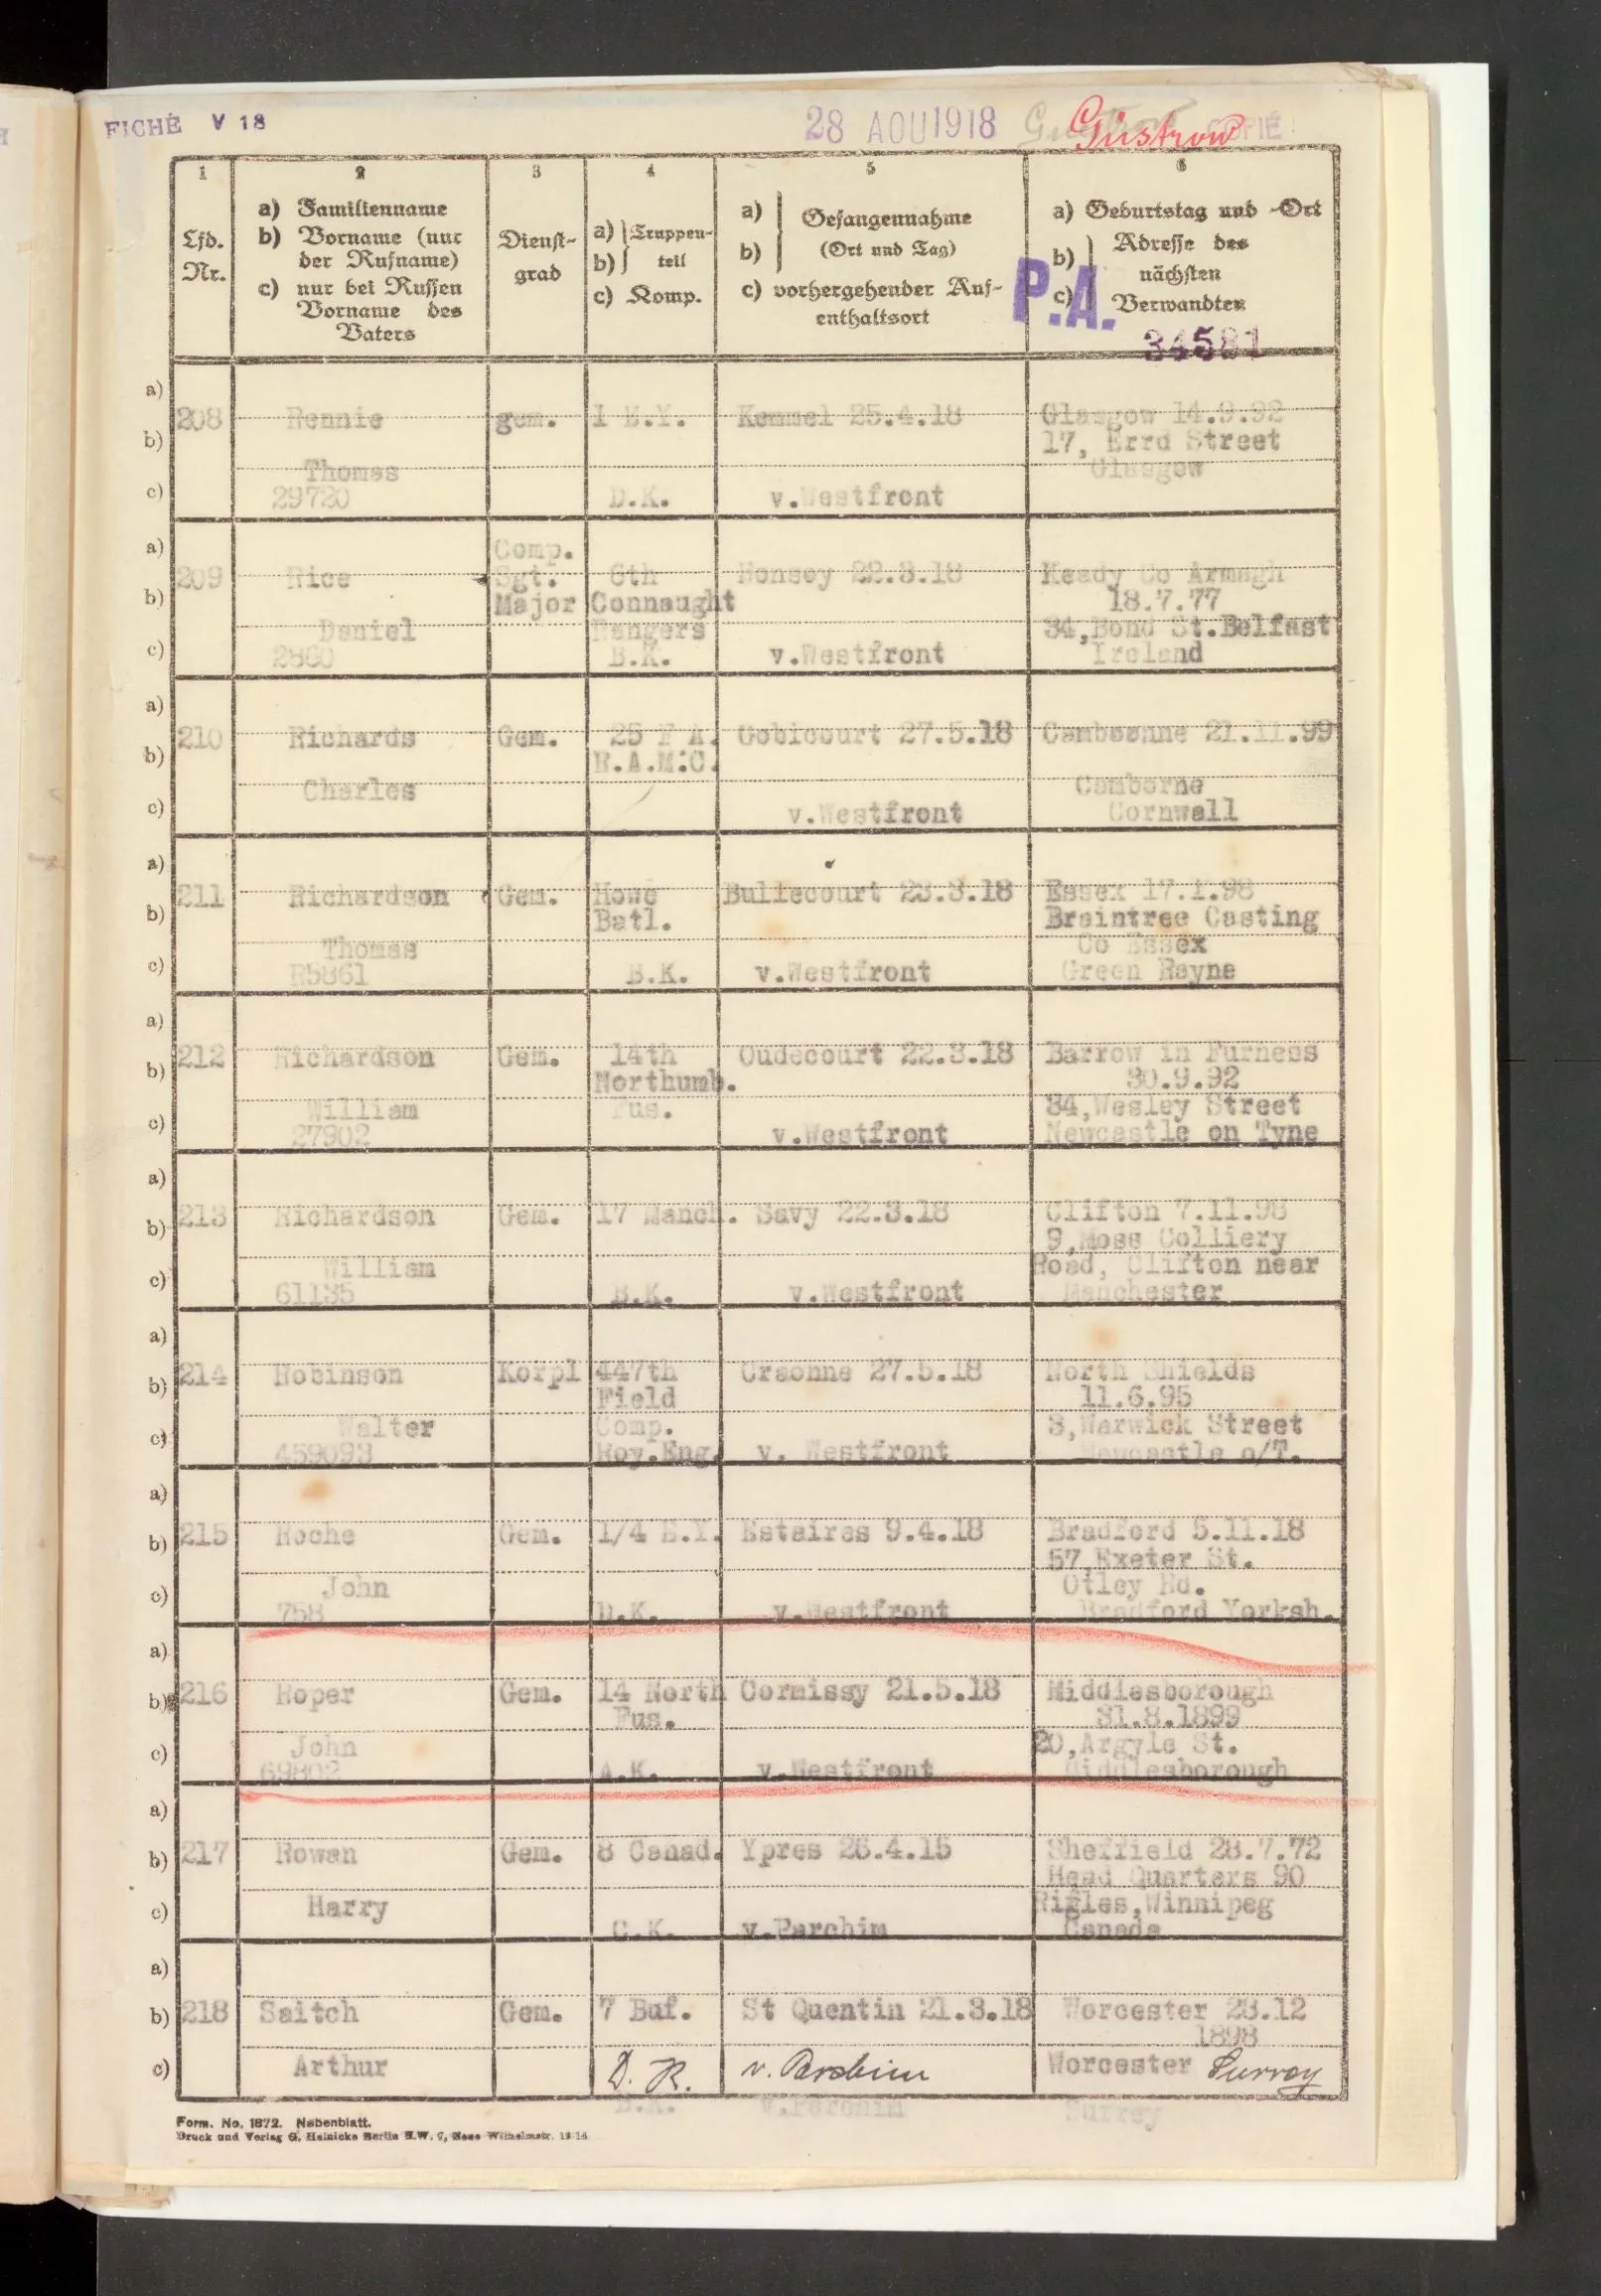 FICHÉ V 18
28 AOU 1918 Güstrow
1 2 3 4 5 6
Lfd. Nr.
a) Familienname
b) Vorname (nur der Rufname)
c) nur bei Russen Vorname des Vaters
Dienst-grad
a) b) Truppen-teil
c) Komp.
a) b) Gefangennahme (Ort und Tag)
c) vorhergehender Auf-enthaltsort
a) Geburtstag und -Ort
b) c) Adresse des nächsten Verwandten
P.A.
34581
a)
208 Rennie gem. 1 E.Y. Kemmel 25.4.18 Glasgow 14.9.92
b) 17, Errd Street
Thomas Glasgow
c) 29720 D.K. v.Westfront
a) Comp.
209 Rice Sgt. 6th Honsoy 22.3.18 Keady Co Armagh
b) Major Connaught 18.7.77
Daniel Rangers 34,Bond St.Belfast
c) 2860 B.K. v.Westfront Ireland
a)
210 Richards Gem. 25 F A. Gobicourt 27.5.18 21.11.99
b) R.A.M.C.
Charles Camborne
c) v.Westfront Cornwall
a)
211 Richardson Gem. Howe Bullecourt 23.3.18 Essex 17.1.98
b) Batl. Braintree Casting
Thomas Co Essex
c) R5861 B.K. v.Westfront Green Rayne
a)
212 Richardson Gem. 14th Oudecourt 22.3.18 Barrow in Furness
b) Northumb. 30.9.92
William Fus. 34,Wesley Street
c) 27902 v.Westfront Newcastle on Tyne
a)
b) 213 Richardson Gem. 17 Manch. Savy 22.3.18 Clifton 7.11.98
9,Moss Colliery
William Road, Clifton near
c) 61135 B.K. v.Westfront Manchester
a)
b) 214 Robinson Korpl 447th Craonne 27.5.18 North Shields
Field 11.6.95
Walter Comp. 3,Warwick Street
c) 459093 Roy.Eng. v. Westfront Newcastle o/T.
a)
b) 215 Roche Gem. 1/4 E.Y. Estaires 9.4.18 Bradford 5.11.18
57,Exeter St.
John Otley Rd.
c) 758 D.K. v.Westfront Bradford Yorksh.
a)
b) 216 Roper Gem. 14 North Cormissy 21.5.18 Middlesborough
Fus. 31.8.1899
John 20,Argyle St.
c) 69802 A.K. v.Westfront Middlesborough
a)
b) 217 Rowan Gem. 8 Canad. Ypres 26.4.15 Sheffield 28.7.72
Head Quarters 90
Harry Rifles,Winnipeg
c) C.K. v.Parchim Canada
a)
b) 218 Saitch Gem. 7 Buf. St Quentin 21.3.18 Worcester 28.12
1898
c) Arthur D. K. v. Parchim Worcester Surrey
v.Parchim Surrey
Form. No. 1872. Nebenblatt.
Druck und Verlag G. Heinicke Berlin N.W. 7, Neue Wilhelmstr.